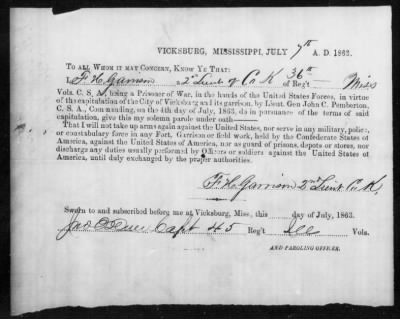 VICKSBURG, MISSISSIPPI, JULY 7th A. D. 1863.
TO ALL WHOM IT MAY CONCERN, KNOW YE THAT:
I F H Garrison 2d Lieut of Co K 36th Reg't Miss
Vols. C. S. A., being a Prisoner of War, in the hands of the United States Forces, in virtue
of the capitulation of the City of Vicksburg and its garrison, by Lieut. Gen John C. Pemberton,
C. S. A., Commanding, on the 4th day of July, 1863, do in pursuance of the terms of said
capitulation, give this my solemn parole under oath
That I will not take up arms again against the United States, nor serve in any military, police,
or constabulary force in any Fort, Garrison or field work, held by the Confederate States of
America, against the United States of America, nor as guard of prisons, depots or stores, nor
discharge any duties usually performed by Officers or soldiers against the United States of
America, until duly exchanged by the proper authorities.
F. H. Garrison 2nd Lieut Co. K.
Sworn to and subscribed before me at Vicksburg, Miss., this day of July, 1863.
Capt 45 Reg't Ill Vols.
AND PAROLING OFFICER.